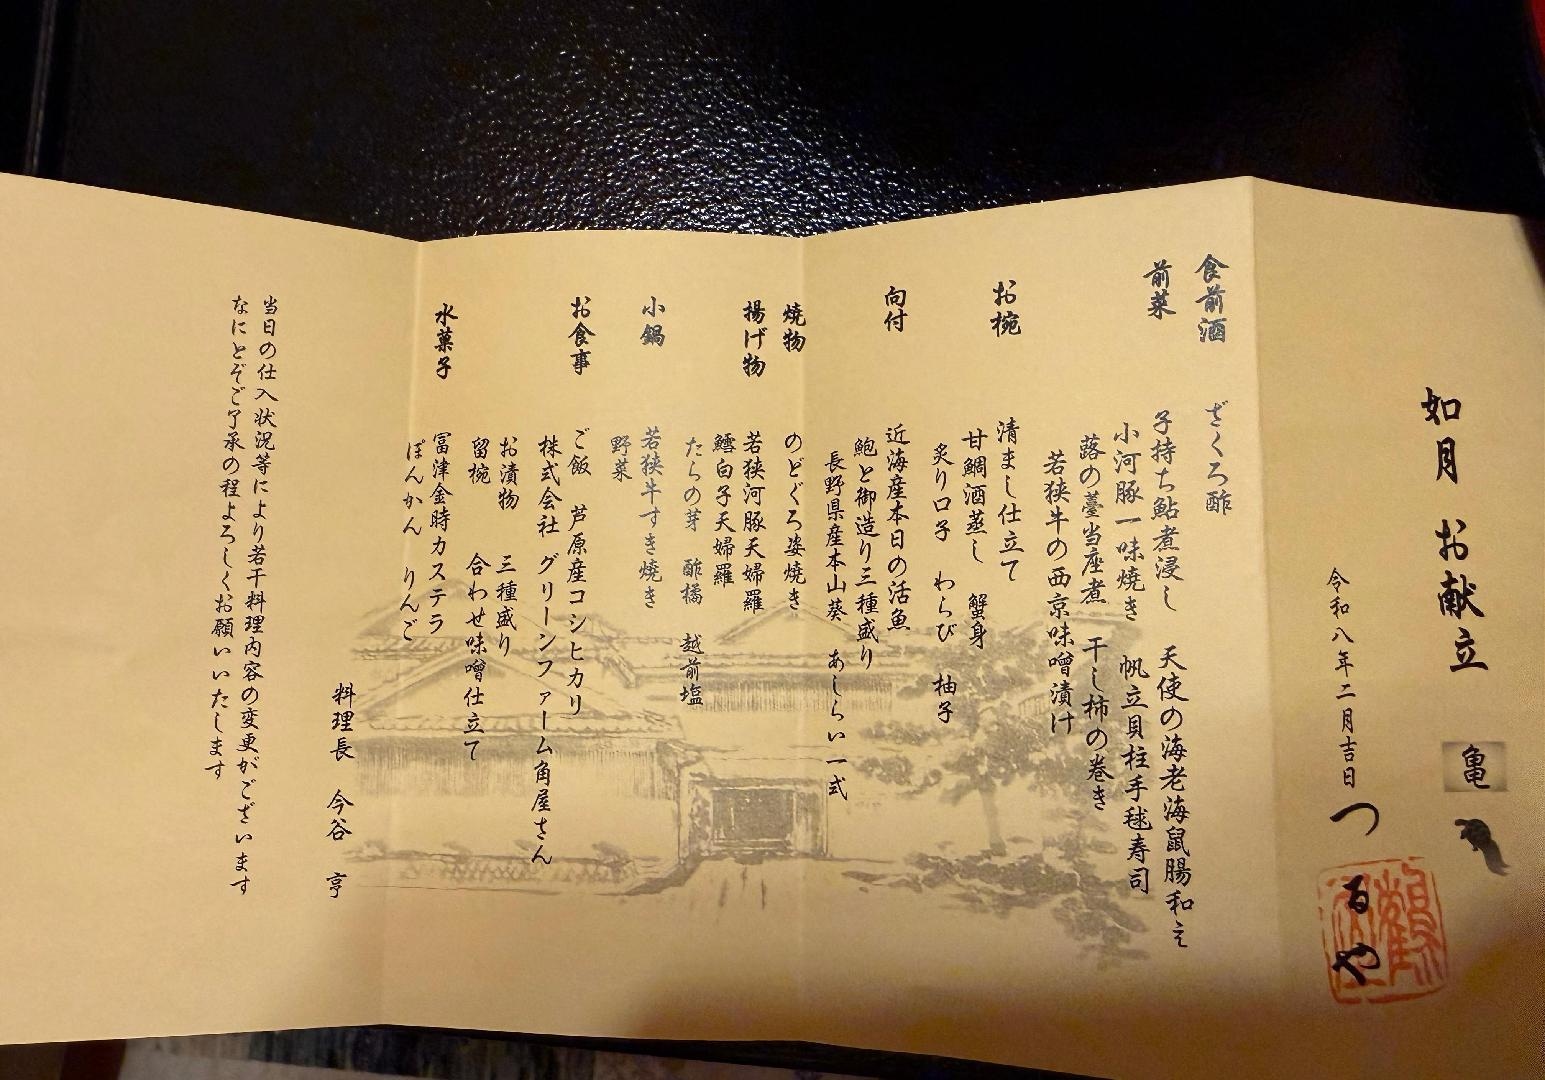 如月 お献立 亀
令和八年二月吉日 つるや
食前酒 ざくろ酢
前菜 子持ち鮎煮浸し 天使の海老海鼠腸和え
小河豚一味焼き 帆立貝柱手毬寿司
蕗の薹当座煮 干し柿の巻き
若狭牛の西京味噌漬け
お椀 清まし仕立て
甘鯛酒蒸し 蟹身
炙り口子 わらび 柚子
向付 近海産本日の活魚
鮑と御造り三種盛り
長野県産本山葵 あしらい一式
焼物 のどぐろ姿焼き
揚げ物 若狭河豚天婦羅
鱈白子天婦羅
たらの芽 酢橘 越前塩
小鍋 若狭牛すき焼き
野菜
お食事 ご飯 芦原産コシヒカリ
株式会社 グリーンファーム角屋さん
お漬物 三種盛り
留椀 合わせ味噌仕立て
水菓子 富津金時カステラ
ぽんかん りんご
料理長 今谷 亨
当日の仕入状況等により若干料理内容の変更がございます
なにとぞご了承の程よろしくお願いいたします